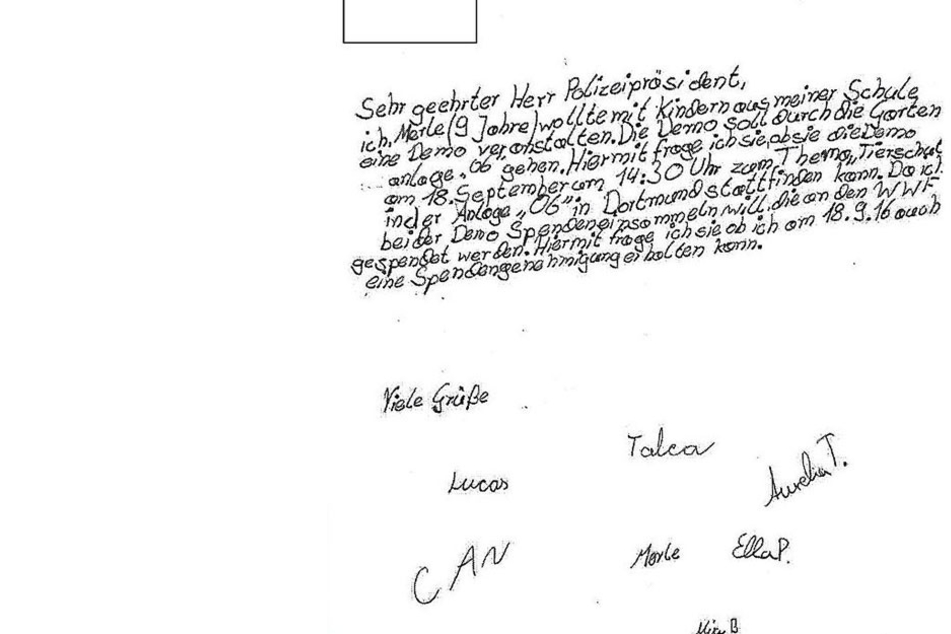 Sehr geehrter Herr Polizeipräsident,
ich, Merle (9 Jahre) wollte mit Kindern aus meiner Schule
eine Demo veranstalten. Die Demo soll durch die Garten
anlage „06 gehen. Hiermit frage ich sie, ob sie die Demo
am 18. September um 14:30 Uhr zum Thema „Tierschut
in der Anlage „06" in Dortmund stattfinden kann. Da ich
bei der Demo Spenden einsammeln will, die an den WWF
gespendet werden. Hiermit frage ich sie ob ich am 18.9.16 auch
eine Spendengenehmigung erhalten kann.
Viele Grüße
Talea
Aurelia T.
Lucas
CAN
Merle
Ella P.